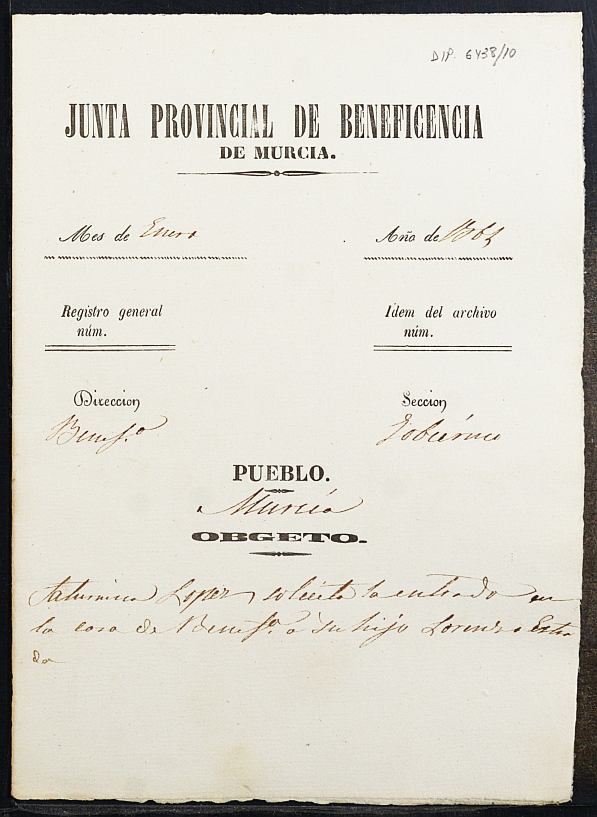 DIP. 6438/10
JUNTA PROVINCIAL DE BENEFICENCIA
DE MURCIA.
Mes de Enero
Año de 1861
Registro general
núm.
Idem del archivo
núm.
Direccion
Benef.a
Seccion
Gobierno
PUEBLO.
Murcia
OBGETO.
Saturnina Lopez, solicita la entrada en
la casa de Benef.a a su hijo Lorenzo Estra
da